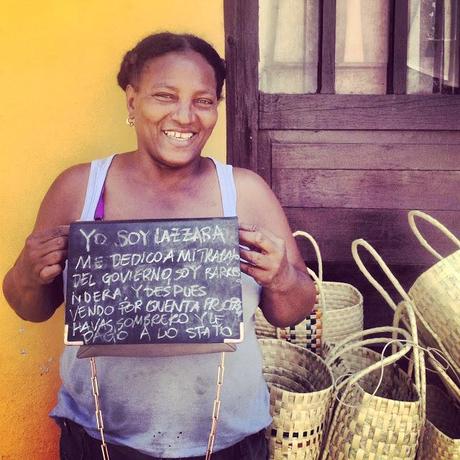 YO SOY LAZZARA
ME DEDICO A MI TRABAJO
DEL GOVIERNO, SOY BARRE
NDERA, Y DESPUES
VENDO POR CUENTA PROPIA
HAVAS, SOMBRERO Y LE
PAGO A LO STATO